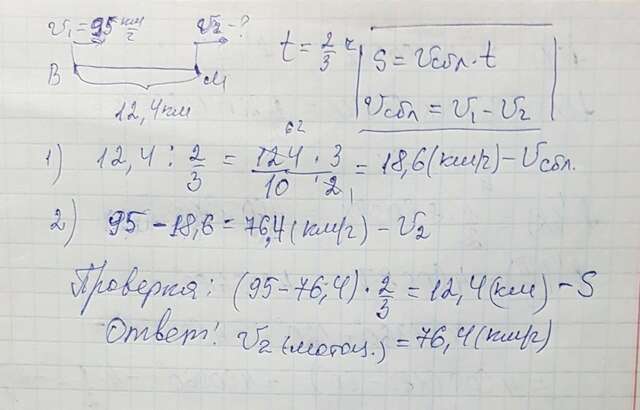 v₁ = 95 км/г v₂ - ?
t = 2/3 г
S = vсбл. · t
B M
12,4 км
vсбл = v₁ - v₂
1) 12,4 : 2/3 = (124 · 3)/(10 · 2) = 18,6 (км/г) - vсбл.
62 1
2) 95 - 18,6 = 76,4 (км/г) - v₂
Проверка: (95 - 76,4) · 2/3 = 12,4 (км) - S
Ответ: v₂ (мотоц.) = 76,4 (км/г)